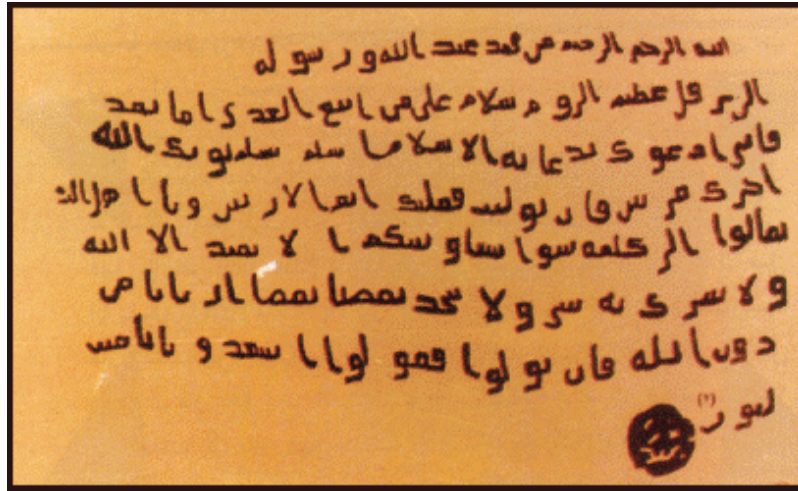 الله الرحمن الرحيم من محمد عبد الله و رسوله
الى هرقل عظيم الروم سلام على من اتبع الهدى اما بعد
فانى ادعوك بدعاية الاسلام ا سلم تسلم يوتك الله
اجرك مرتين فان توليت فعليك اثم الاريسين ويا اهل الك
تعالوا الى كلمة سوا بيننا وبينكم ا لا نعبد الا الله
ولا نشرك به شى ولا يتخذ بعضنا بعضا اربابا من
دون الله فان تولوا فقولوا اشهدوا بانا مس
لمون (٢)